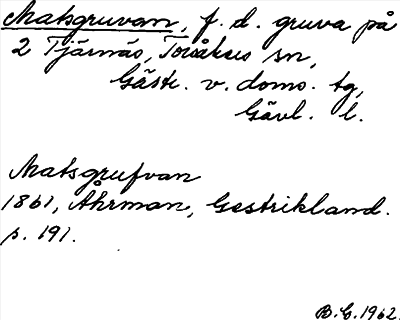 Matsgruvan, f. d. gruva på
2 Tjärnäs, Torsåkers sn,
Gästr. v. doms. tg,
Gävl. l.
Matsgrufvan
1861, Åhrman, Gestrikland.
p. 191.
B.G. 1962.